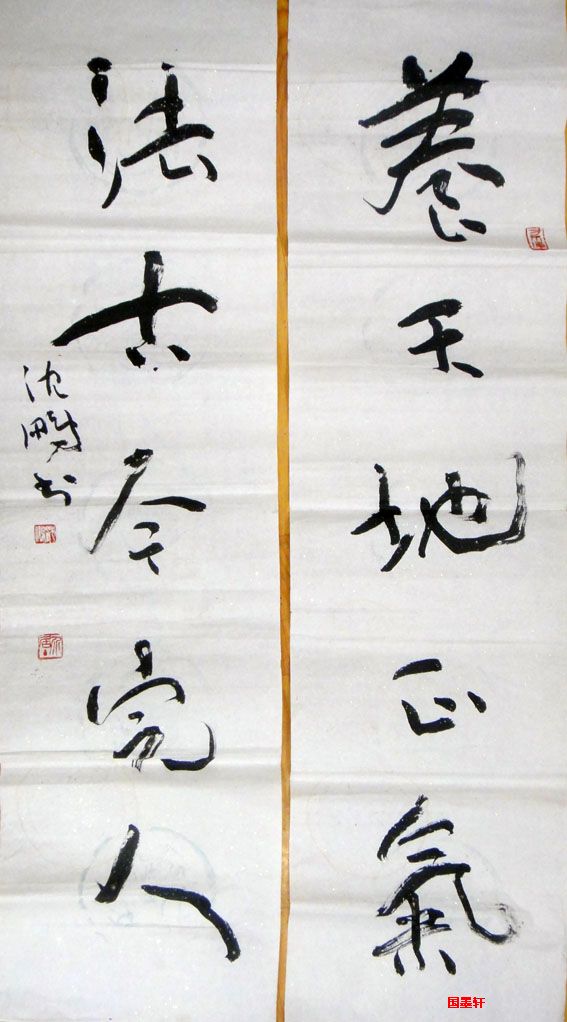 養天地正氣
法古今完人
沈鵬书
国墨轩